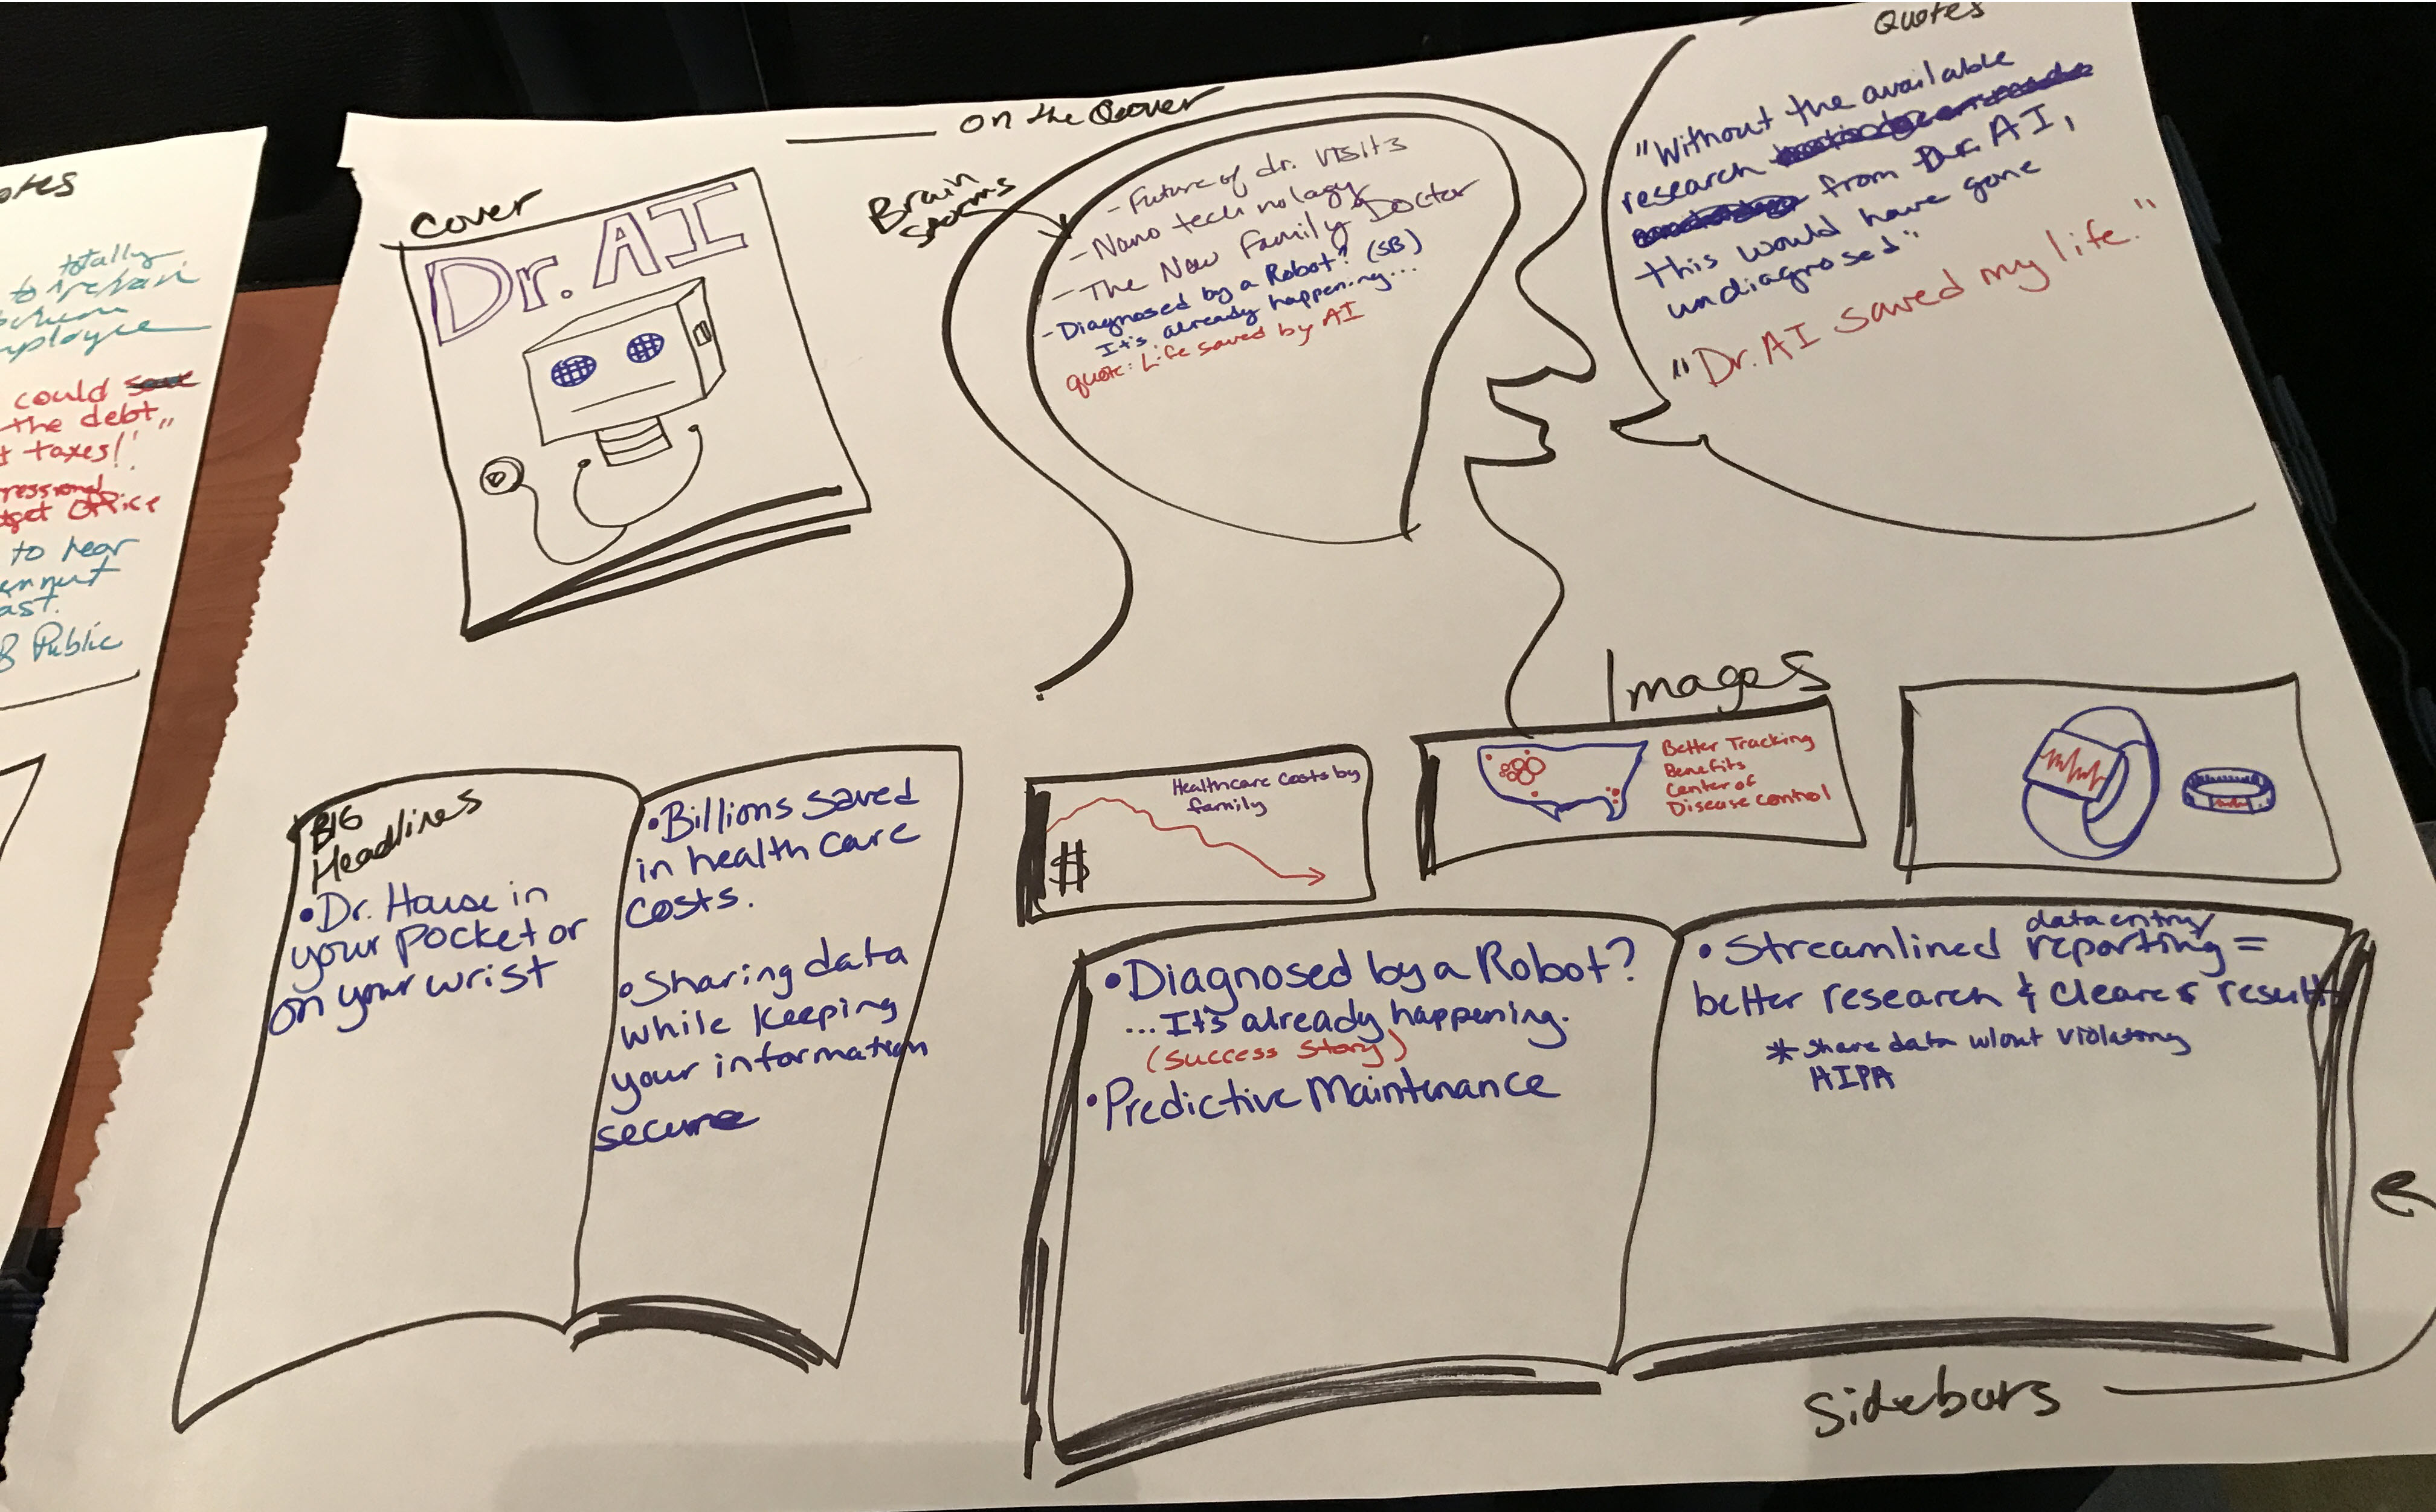 otes
totally
to
mployee
could
the debt,"
t taxes!'
ressional
Office
to hear
ast.
& Public
on the Cover
Cover
Dr. AI
Brain
storms
- Future of dr. visits
- Nano technology
- The New Family Doctor
- Diagnosed by a Robot? (SB)
It's already happening...
quote: Life saved by AI
Quotes
"Without the available
research
from Dr. AI,
this would have gone
undiagnosed"
"Dr. AI saved my life."
BIG
Headlines
• Dr. House in
your pocket or
on your wrist
• Billions saved
in health care
costs.
• Sharing data
while keeping
your information
secure
Images
Healthcare costs by
family
$
Better Tracking
Benefits
Center of
Disease control
• Diagnosed by a Robot?
...It's already happening.
(success story)
• Predictive Maintenance
data entry
• Streamlined reporting =
better research & clearer results
* share data w/out violating
HIPA
Sidebars